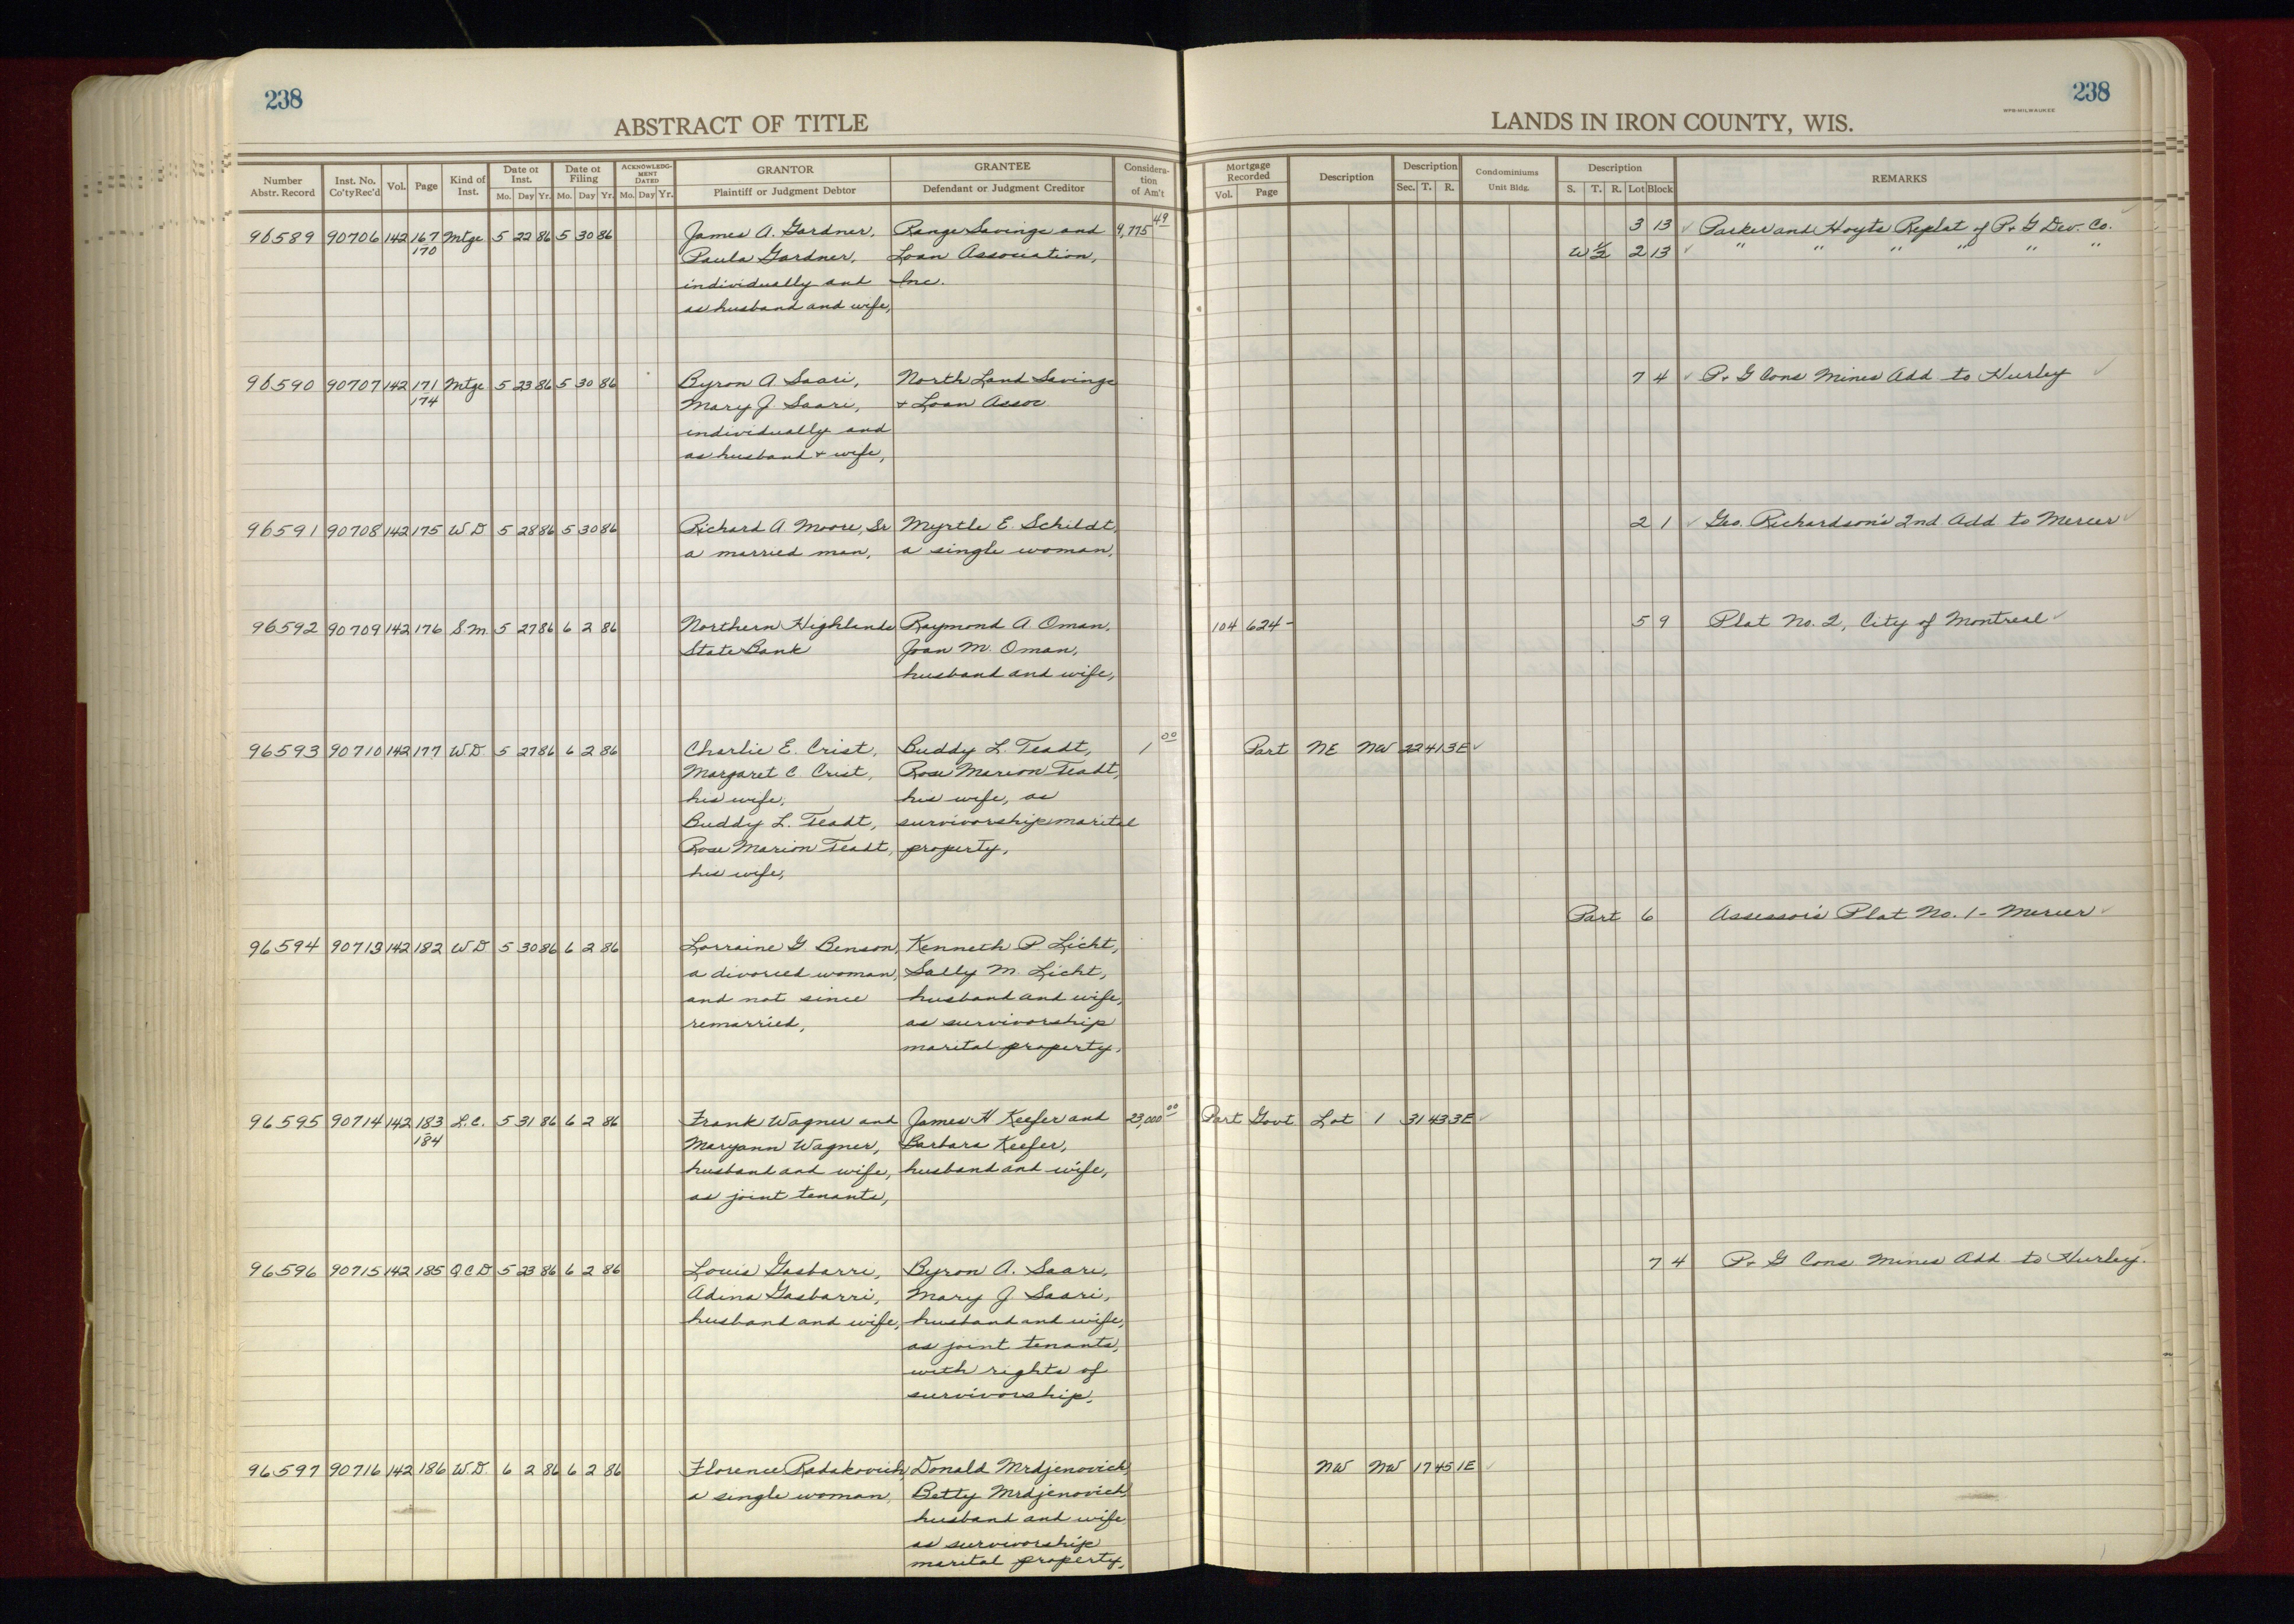 238
ABSTRACT OF TITLE
Number Abstr. Record | Inst. No. Co'ty Rec'd | Vol. | Page | Kind of Inst. | Date of Inst. Mo. Day Yr. | Date of Filing Mo. Day Yr. | ACKNOWLEDGMENT DATED Mo. Day Yr. | GRANTOR Plaintiff or Judgment Debtor | GRANTEE Defendant or Judgment Creditor | Consideration of Am't
96589 90706 142 167 Mtge 5 22 86 5 30 86 James A. Gardner, Range Savings and 9,775 49
170 Paula Gardner, Loan Association,
individually and Inc.
as husband and wife,
96590 90707 142 171 Mtge 5 23 86 5 30 86 Byron A Saari, North Land Savings
174 Mary J. Saari, + Loan Assoc.
individually and
as husband + wife,
96591 90708 142 175 W D 5 28 86 5 30 86 Richard A. Moore, Sr Myrtle E. Schildt,
a married man, a single woman,
96592 90709 142 176 S.M. 5 27 86 6 2 86 Northern Highlands Raymond A. Oman,
State Bank Joan M. Oman,
husband and wife,
96593 90710 142 177 W.D 5 27 86 6 2 86 Charlie E. Crist, Buddy L. Teadt, 1 00
Margaret C. Crist, Rose Marion Teadt,
his wife, his wife, as
Buddy L. Teadt, survivorship marital
Rose Marion Teadt, property,
his wife,
96594 90713 142 182 W D 5 30 86 6 2 86 Lorraine G Benson, Kenneth P. Licht,
a divorced woman, Sally M. Licht,
and not since husband and wife,
remarried, as survivorship
marital property,
96595 90714 142 183 L.C. 5 31 86 6 2 86 Frank Wagner and James H Keefer and 23,000 00
184 Maryann Wagner, Barbara Keefer,
husband and wife, husband and wife,
as joint tenants,
96596 90715 142 185 Q C D 5 23 86 6 2 86 Louis Gasbarri, Byron A. Saari,
Adena Gasbarri, Mary J. Saari,
husband and wife, husband and wife,
as joint tenants,
with rights of
survivorship,
96597 90716 142 186 W.D. 6 2 86 6 2 86 Florence Radakovich, Donald Mrdjenovich,
a single woman, Betty Mrdjenovich,
husband and wife
as survivorship
marital property,
238
WPB-MILWAUKEE
LANDS IN IRON COUNTY, WIS.
Mortgage Recorded Vol. Page | Description | Description Sec. T. R. | Condominiums Unit Bldg. | Description S. T. R. Lot Block | REMARKS
3 13 ✓ Parker and Hoyts Replat of P. + G Dev. Co. ✓
W 1/2 2 13 ✓ " " " " " "
7 4 ✓ P. + G Cons Mines Add to Hurley ✓
2 1 ✓ Geo. Richardson's 2nd Add to Mercer ✓
104 624 - 5 9 Plat No. 2, City of Montreal ✓
Part NE NW 22 41 3E ✓
Part 6 Assessor's Plat No. 1 - Mercer ✓
Part Govt Lot 1 31 43 3E ✓
7 4 P. + G Cons Mines Add to Hurley.
NW NW 17 45 1E ✓